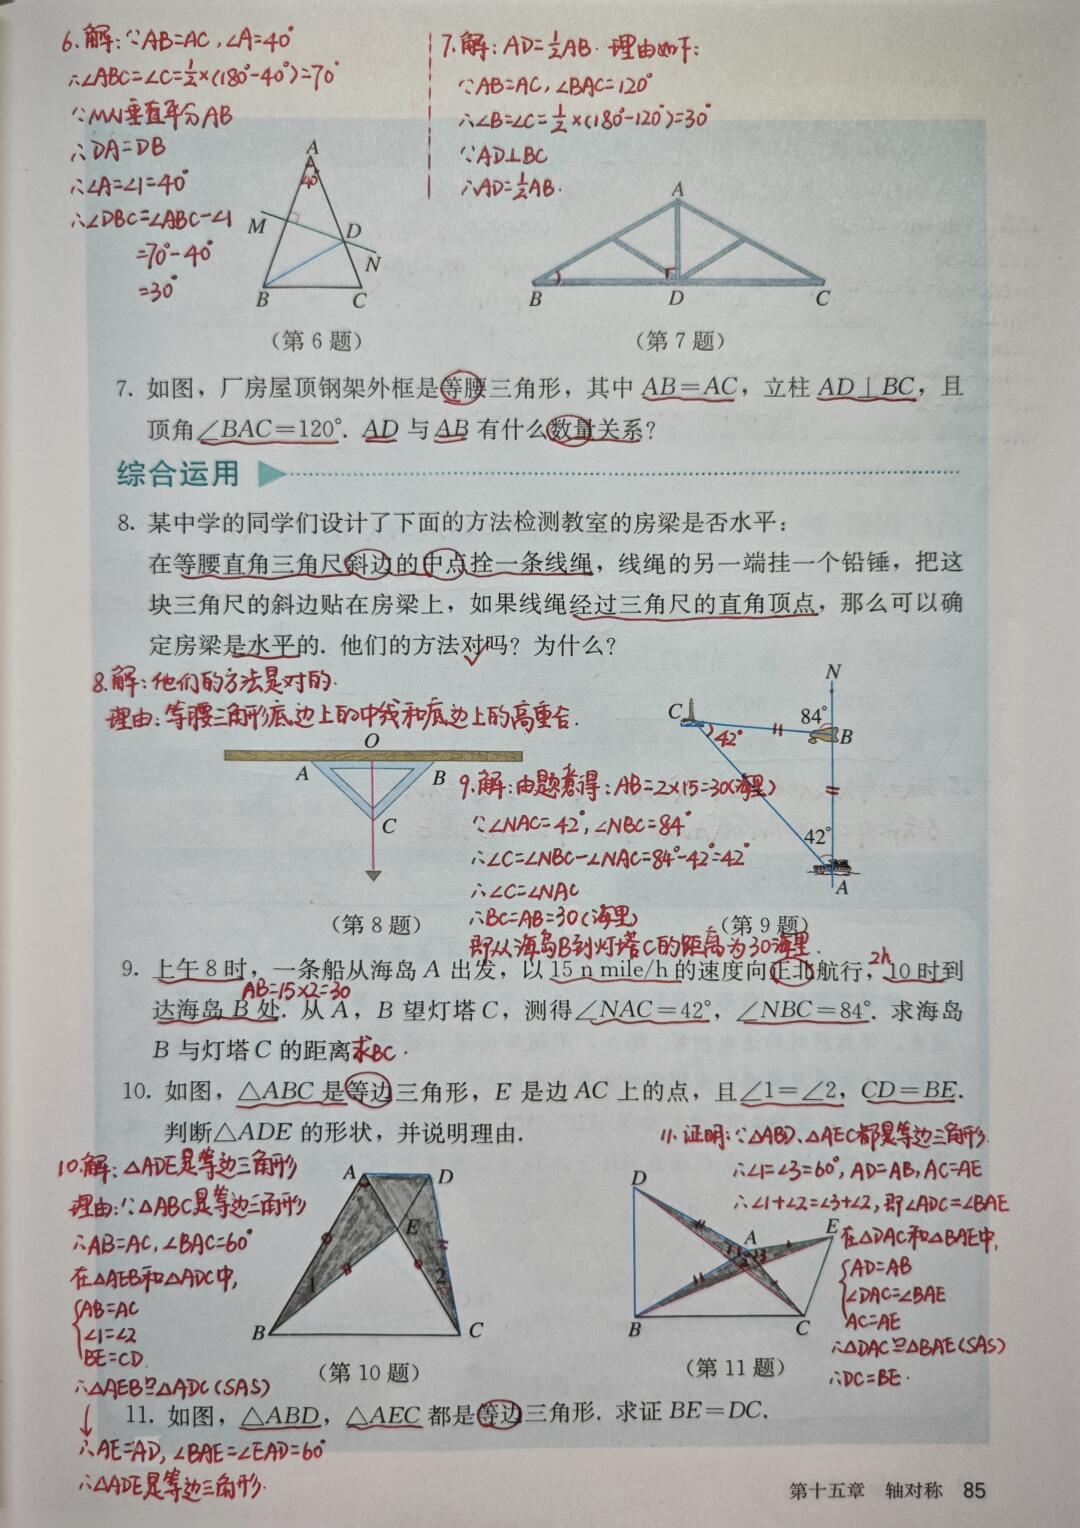 6.解:∵AB=AC,∠A=40°
∴∠ABC=∠C=½×(180°-40°)=70°
∵MN垂直平分AB
∴DA=DB
∴∠A=∠1=40°
∴∠DBC=∠ABC-∠1
=70°-40°
=30°
7.解:AD=½AB.理由如下:
∵AB=AC,∠BAC=120°
∴∠B=∠C=½×(180°-120°)=30°
∵AD⊥BC
∴AD=½AB.
A
40°
M
D
N
B
C
(第6题)
A
B
D
C
(第7题)
7. 如图,厂房屋顶钢架外框是等腰三角形,其中AB=AC,立柱AD⊥BC,且
顶角∠BAC=120°. AD与AB有什么数量关系?
综合运用
8. 某中学的同学们设计了下面的方法检测教室的房梁是否水平:
在等腰直角三角尺斜边的中点拴一条线绳,线绳的另一端挂一个铅锤,把这
块三角尺的斜边贴在房梁上,如果线绳经过三角尺的直角顶点,那么可以确
定房梁是水平的. 他们的方法对吗?为什么?
8.解:他们的方法是对的.
理由:等腰三角形底边上的中线和底边上的高重合.
O
A
B
C
(第8题)
N
C
84°
B
42°
42°
A
(第9题)
9.解:由题意得:AB=2×15=30(海里)
∵∠NAC=42°,∠NBC=84°
∴∠C=∠NBC-∠NAC=84°-42°=42°
∴∠C=∠NAC
∴BC=AB=30(海里)
即从海岛B到灯塔C的距离为30海里.
2h
9. 上午8时,一条船从海岛A出发,以15 n mile/h的速度向正北航行,10时到
AB=15×2=30
达海岛B处. 从A,B望灯塔C,测得∠NAC=42°,∠NBC=84°. 求海岛
B与灯塔C的距离求BC.
10. 如图,△ABC是等边三角形,E是边AC上的点,且∠1=∠2,CD=BE.
判断△ADE的形状,并说明理由.
10.解:△ADE是等边三角形
理由:∵△ABC是等边三角形
∴AB=AC,∠BAC=60°
在△AEB和△ADC中,
AB=AC
∠1=∠2
BE=CD
∴△AEB≌△ADC(SAS)
A
D
E
1
2
B
C
(第10题)
11.证明:∵△ABD、△AEC都是等边三角形
∴∠1=∠3=60°,AD=AB,AC=AE
∴∠1+∠2=∠3+∠2,即∠ADC=∠BAE
在△DAC和△BAE中,
AD=AB
∠DAC=∠BAE
AC=AE
∴△DAC≌△BAE(SAS)
∴DC=BE.
D
A
E
1
2
3
B
C
(第11题)
11. 如图,△ABD,△AEC都是等边三角形. 求证BE=DC.
∴AE=AD,∠BAE=∠EAD=60°
∴△ADE是等边三角形.
第十五章 轴对称 85